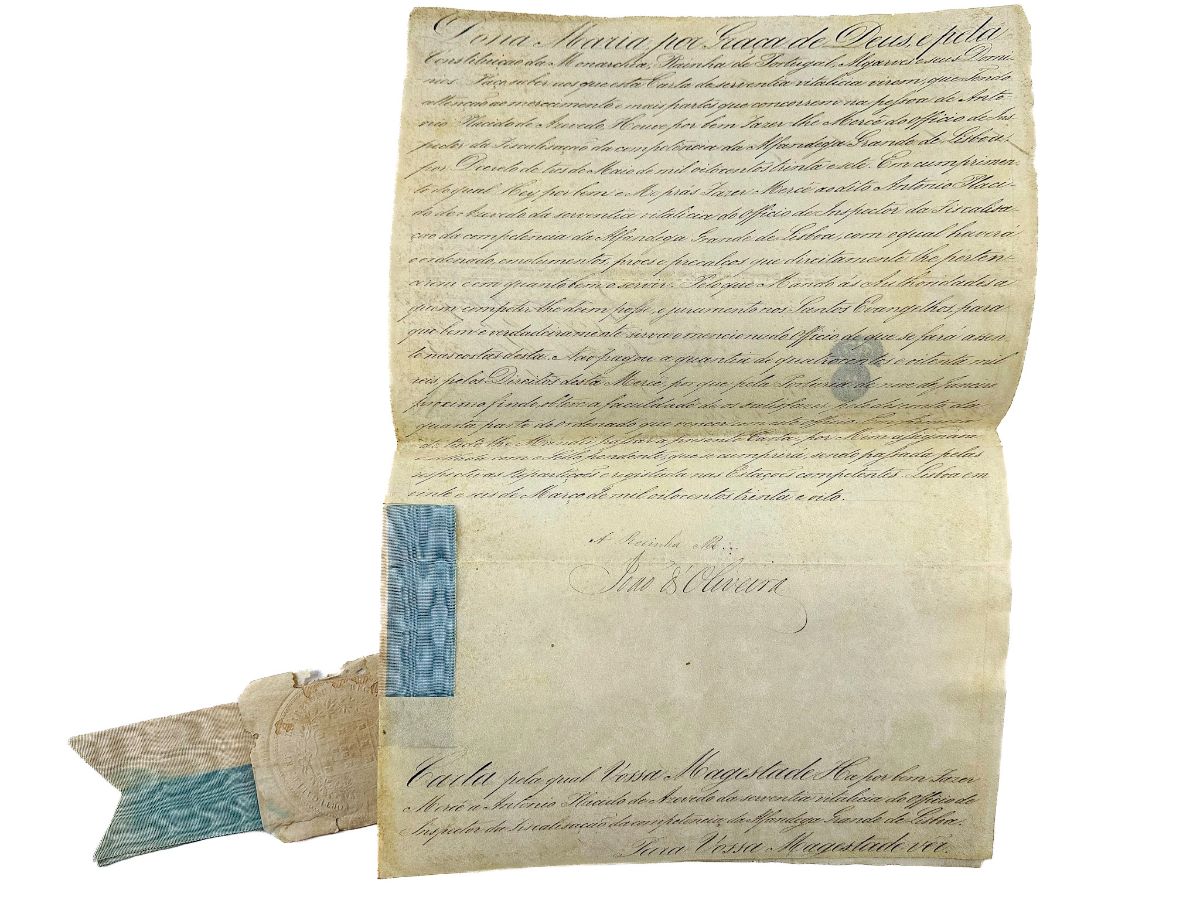 Dona Maria por Graça de Deus, e pela
Constituição da Monarchia, Rainha de Portugal, Algarves e seus Domi-
nios. Faço saber aos que esta Carta de serventia vitalicia virem, que Tendo
attenção ao merecimento e mais partes que concorrem na pessoa de Anto-
nio Placido de Azevedo, Houve por bem Fazer-lhe Mercê do officio de Ins-
pector da Fiscalisação da competencia da Alfandega Grande de Lisboa
por Decreto de tres de Maio de mil oitocentos trinta e sete. Em cumprimen-
to do qual Hey por bem e Me prás Fazer Mercê ao dito Antonio Placi-
do de Azevedo da serventia vitalicia do Officio de Inspector da Fiscalisa-
ção da competencia da Alfandega Grande de Lisboa, com o qual haverá
o ordenado, emolumentos, próes e precalços que direitamente lhe perten-
cerem em quanto bem o servir. Pelo que Mando ás Authoridades a
quem competir lhe dem posse, e juramento nos Santos Evangelhos, para
que bem e verdadeiramente serva o mencionado Officio de que se fara assen-
to nas costas desta. Não pagou a quantia de quatrocentos e oitenta mil
reis pelos Direitos desta Mercê por que pela Portaria de nove de Janeiro
proximo findo obteve a faculdade de os satisfazer pelo desconto da
quarta parte do ordenado que vencer com o dito officio.
lhe Mandei passar a presente Carta por Mim assignada
que se cumprirá, sendo passada pelas
respectivas Repartições e registada nas Estações competentes. Lisboa em
vinte e seis de Março de mil oitocentos trinta e oito.
A Rainha
João d'Oliveira
Carta pela qual Vossa Magestade Ha por bem Fazer
Mercê a Antonio Placido de Azevedo da serventia vitalicia do Officio de
Inspector da Fiscalisação da competencia da Alfandega Grande de Lisboa.
Para Vossa Magestade ver.